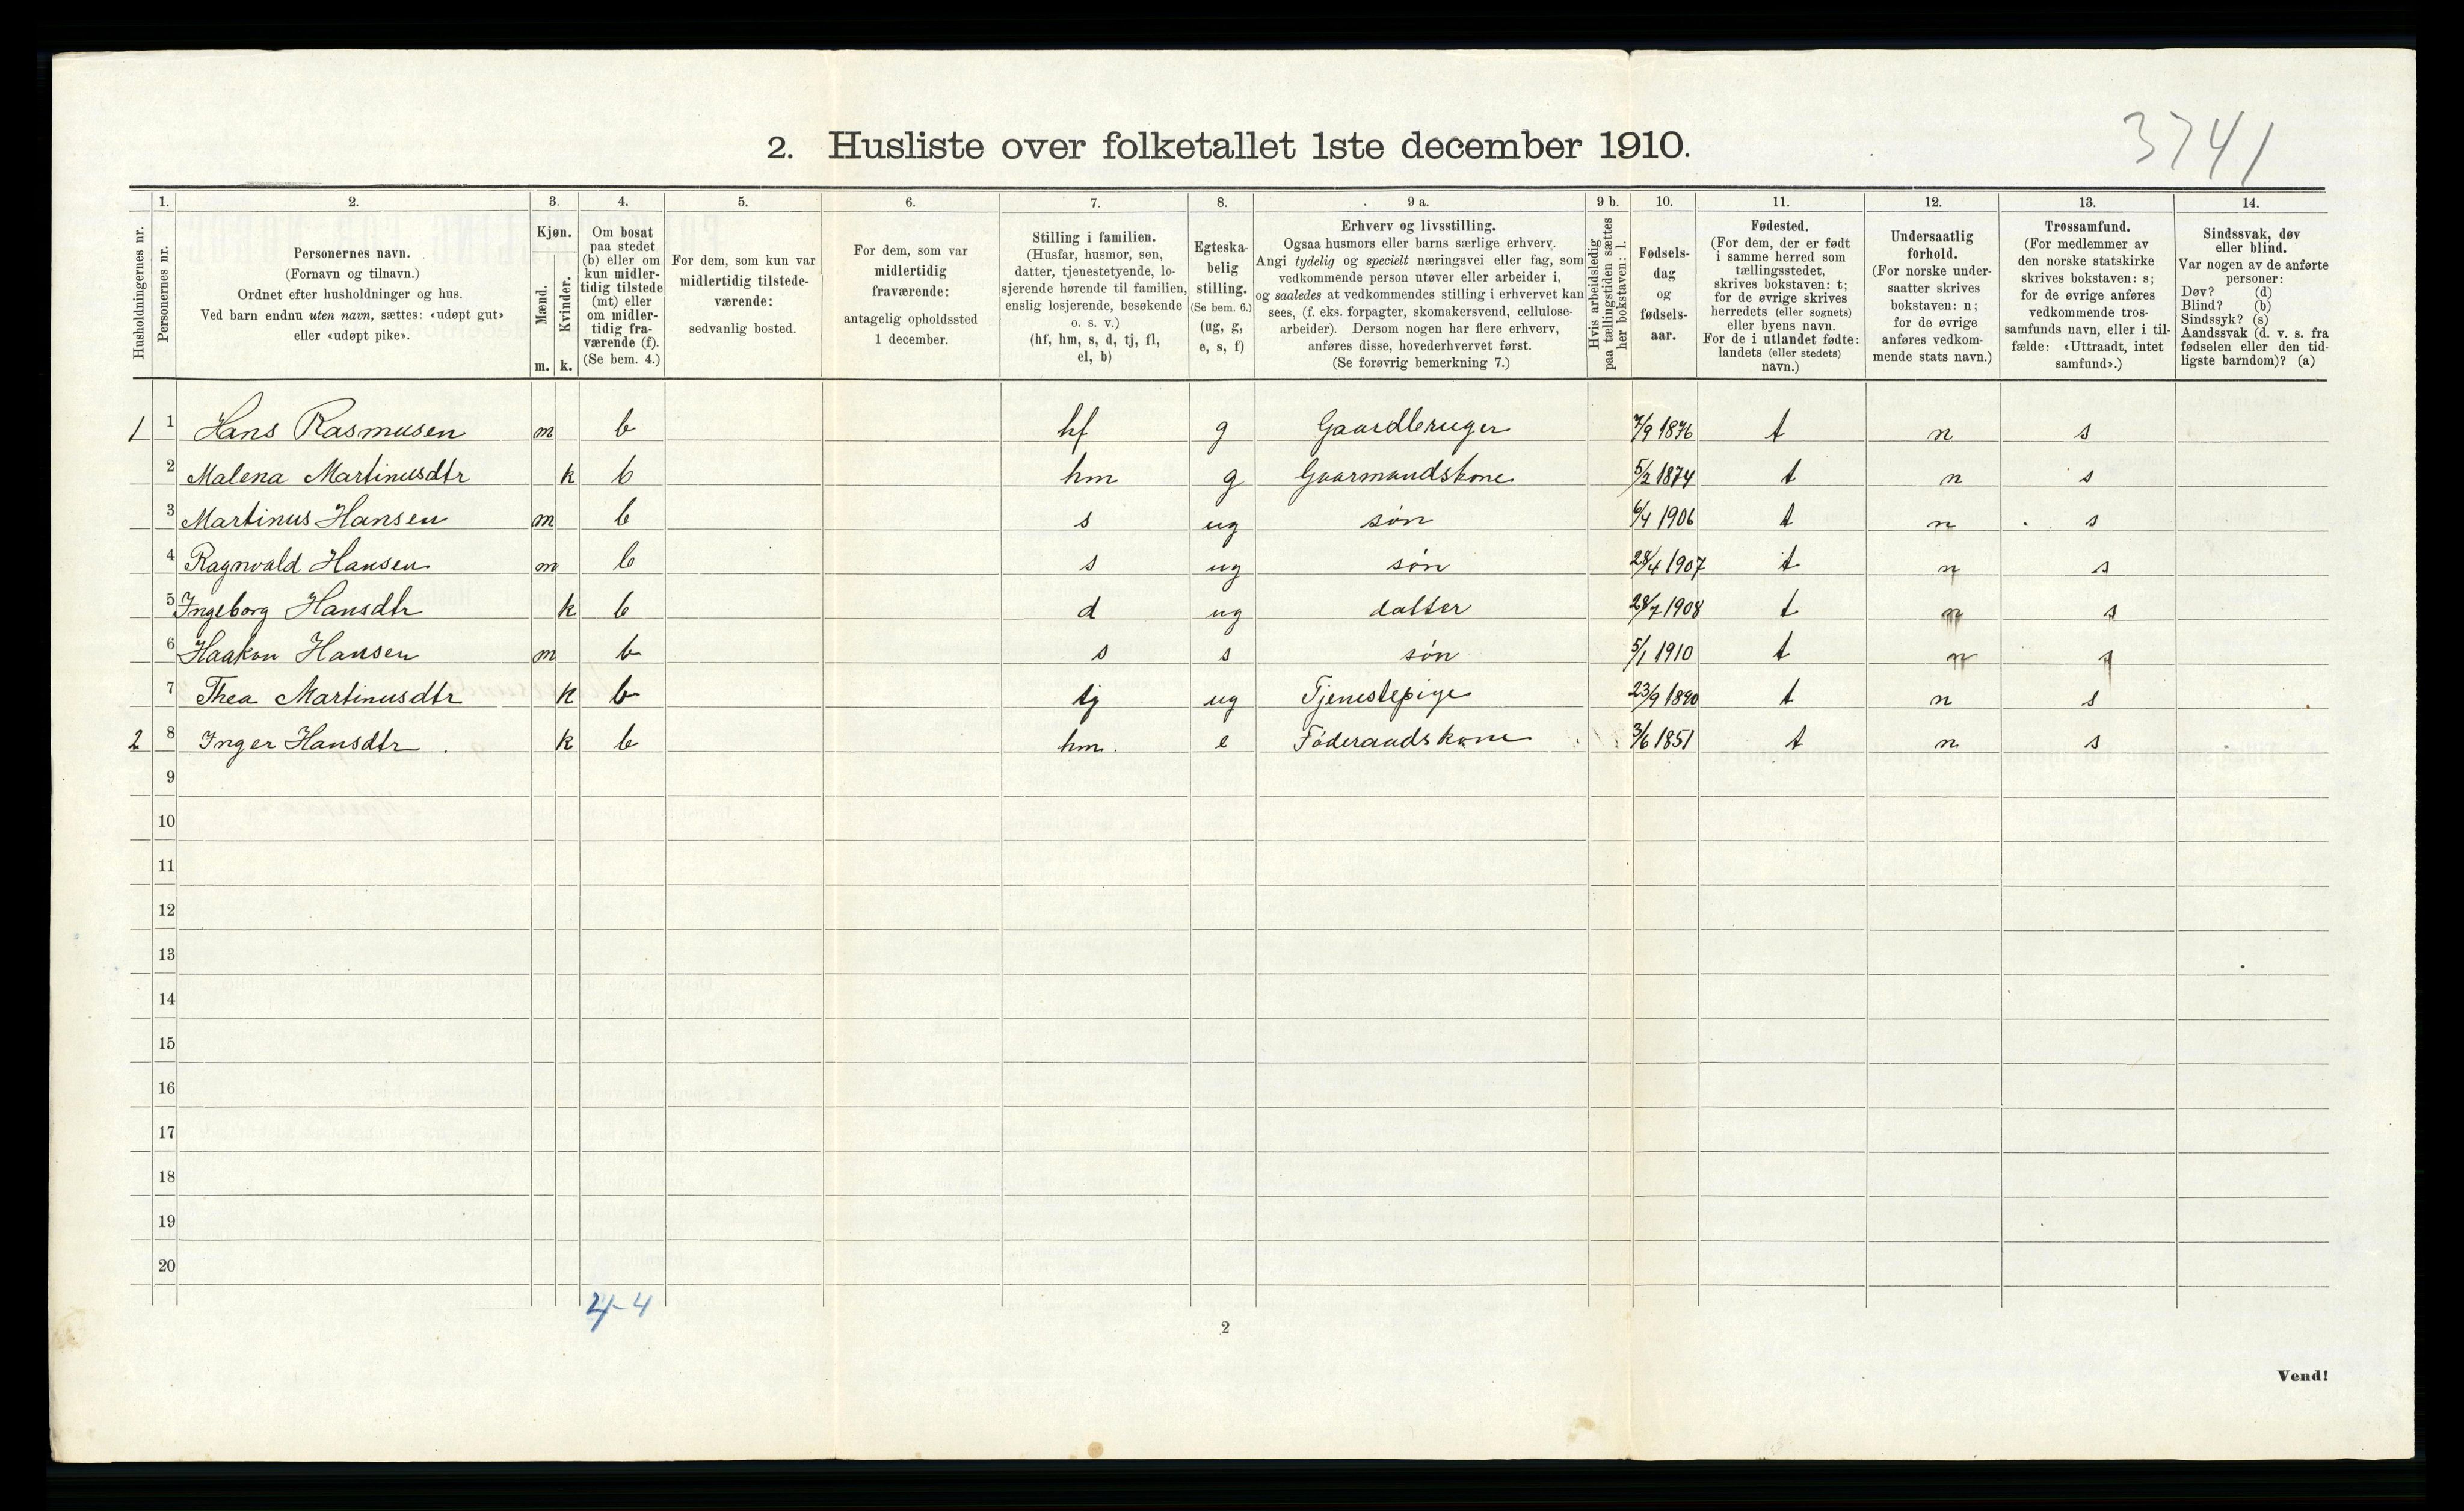 3741
2. Husliste over folketallet 1ste december 1910.
Husholdningernes nr.
1.
Personernes nr.
2.
Personernes navn.
(Fornavn og tilnavn.)
Ordnet efter husholdninger og hus.
Ved barn endnu uten navn, sættes: «udøpt gut»
eller «udøpt pike».
3.
Kjøn.
Mænd.
Kvinder.
m. k.
4.
Om bosat
paa stedet
(b) eller om
kun midler-
tidig tilstede
(mt) eller
om midler-
tidig fra-
værende (f).
(Se bem. 4.)
5.
For dem, som kun var
midlertidig tilstede-
værende:
sedvanlig bosted.
6.
For dem, som var
midlertidig
fraværende:
antagelig opholdssted
1 december.
7.
Stilling i familien.
(Husfar, husmor, søn,
datter, tjenestetyende, lo-
sjerende hørende til familien,
enslig losjerende, besøkende
o. s. v.)
(hf, hm, s, d, tj, fl,
el, b)
8.
Egteska-
belig
stilling.
(Se bem. 6.)
(ug, g,
e, s, f)
9 a.
Erhverv og livsstilling.
Ogsaa husmors eller barns særlige erhverv.
Angi tydelig og specielt næringsvei eller fag, som
vedkommende person utøver eller arbeider i,
og saaledes at vedkommendes stilling i erhvervet kan
sees, (f. eks. forpagter, skomakersvend, cellulose-
arbeider). Dersom nogen har flere erhverv,
anføres disse, hovederhvervet først.
(Se forøvrig bemerkning 7.)
9 b.
Hvis arbeidsledig
paa tællingstiden sættes
her bokstaven: l.
10.
Fødsels-
dag
og
fødsels-
aar.
11.
Fødested.
(For dem, der er født
i samme herred som
tællingsstedet,
skrives bokstaven: t;
for de øvrige skrives
herredets (eller sognets)
eller byens navn.
For de i utlandet fødte:
landets (eller stedets)
navn.)
12.
Undersaatlig
forhold.
(For norske under-
saatter skrives
bokstaven: n;
for de øvrige
anføres vedkom-
mende stats navn.)
13.
Trossamfund.
(For medlemmer av
den norske statskirke
skrives bokstaven: s;
for de øvrige anføres
vedkommende tros-
samfunds navn, eller i til-
fælde: «Uttraadt, intet
samfund».)
14.
Sindssvak, døv
eller blind.
Var nogen av de anførte
personer:
Døv? (d)
Blind? (b)
Sindssyk? (s)
Aandssvak (d. v. s. fra
fødselen eller den tid-
ligste barndom)? (a)
1 1 Hans Rasmusen m b hf g Gaardbruger 7/9 1876 t n s
2 Malena Martinusdtr k b hm g Gaarmandskone 5/2 1874 t n s
3 Martinus Hansen m b s ug søn 6/4 1906 t n s
4 Ragnvald Hansen m b s ug søn 28/4 1907 t n s
5 Ingeborg Hansdtr k b d ug datter 28/7 1908 t n s
6 Haakon Hansen m b s s søn 5/1 1910 t n s
7 Thea Martinusdtr k b tj ug Tjenestepige 23/9 1890 t n s
2 8 Inger Hansdtr k b hm e Föderaadskone 3/6 1851 t n s
9
10
11
12
13
14
15
16
17
18
19
20
4-4
2
Vend!